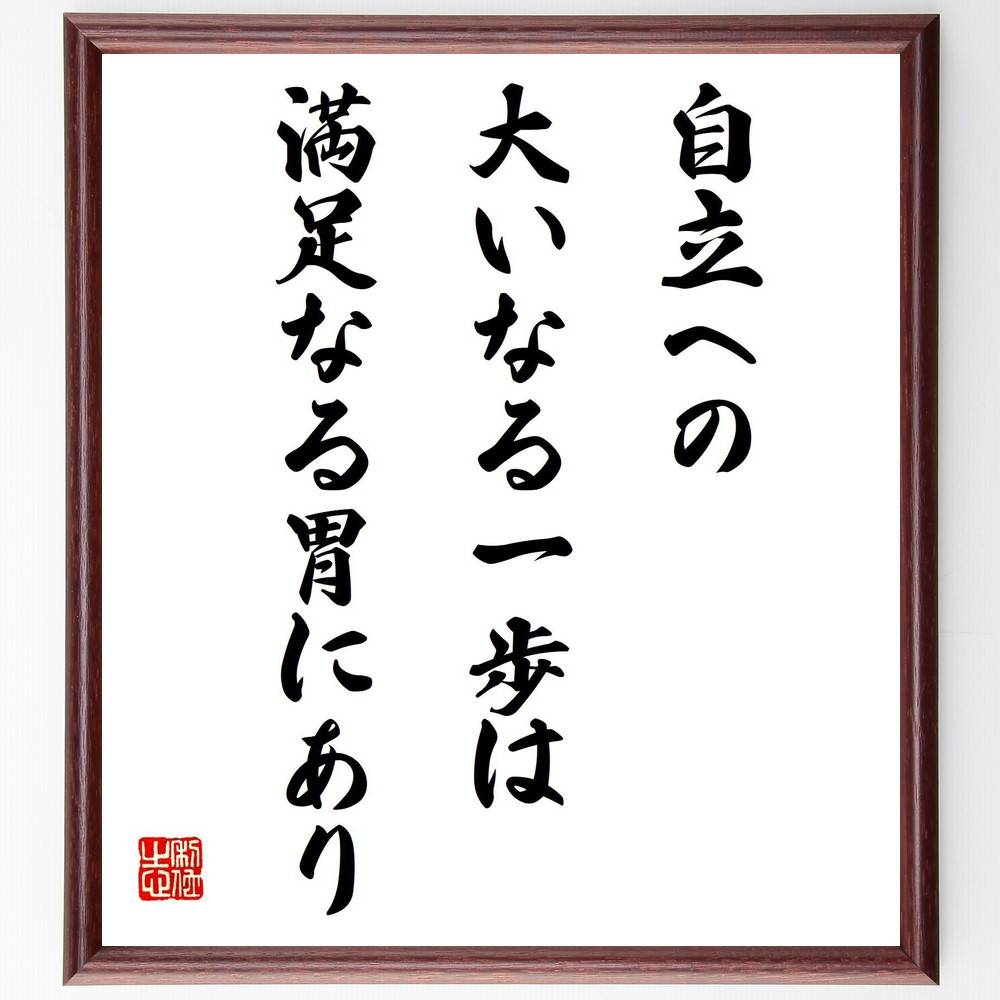 自立への
大いなる一歩は
満足なる胃にあり